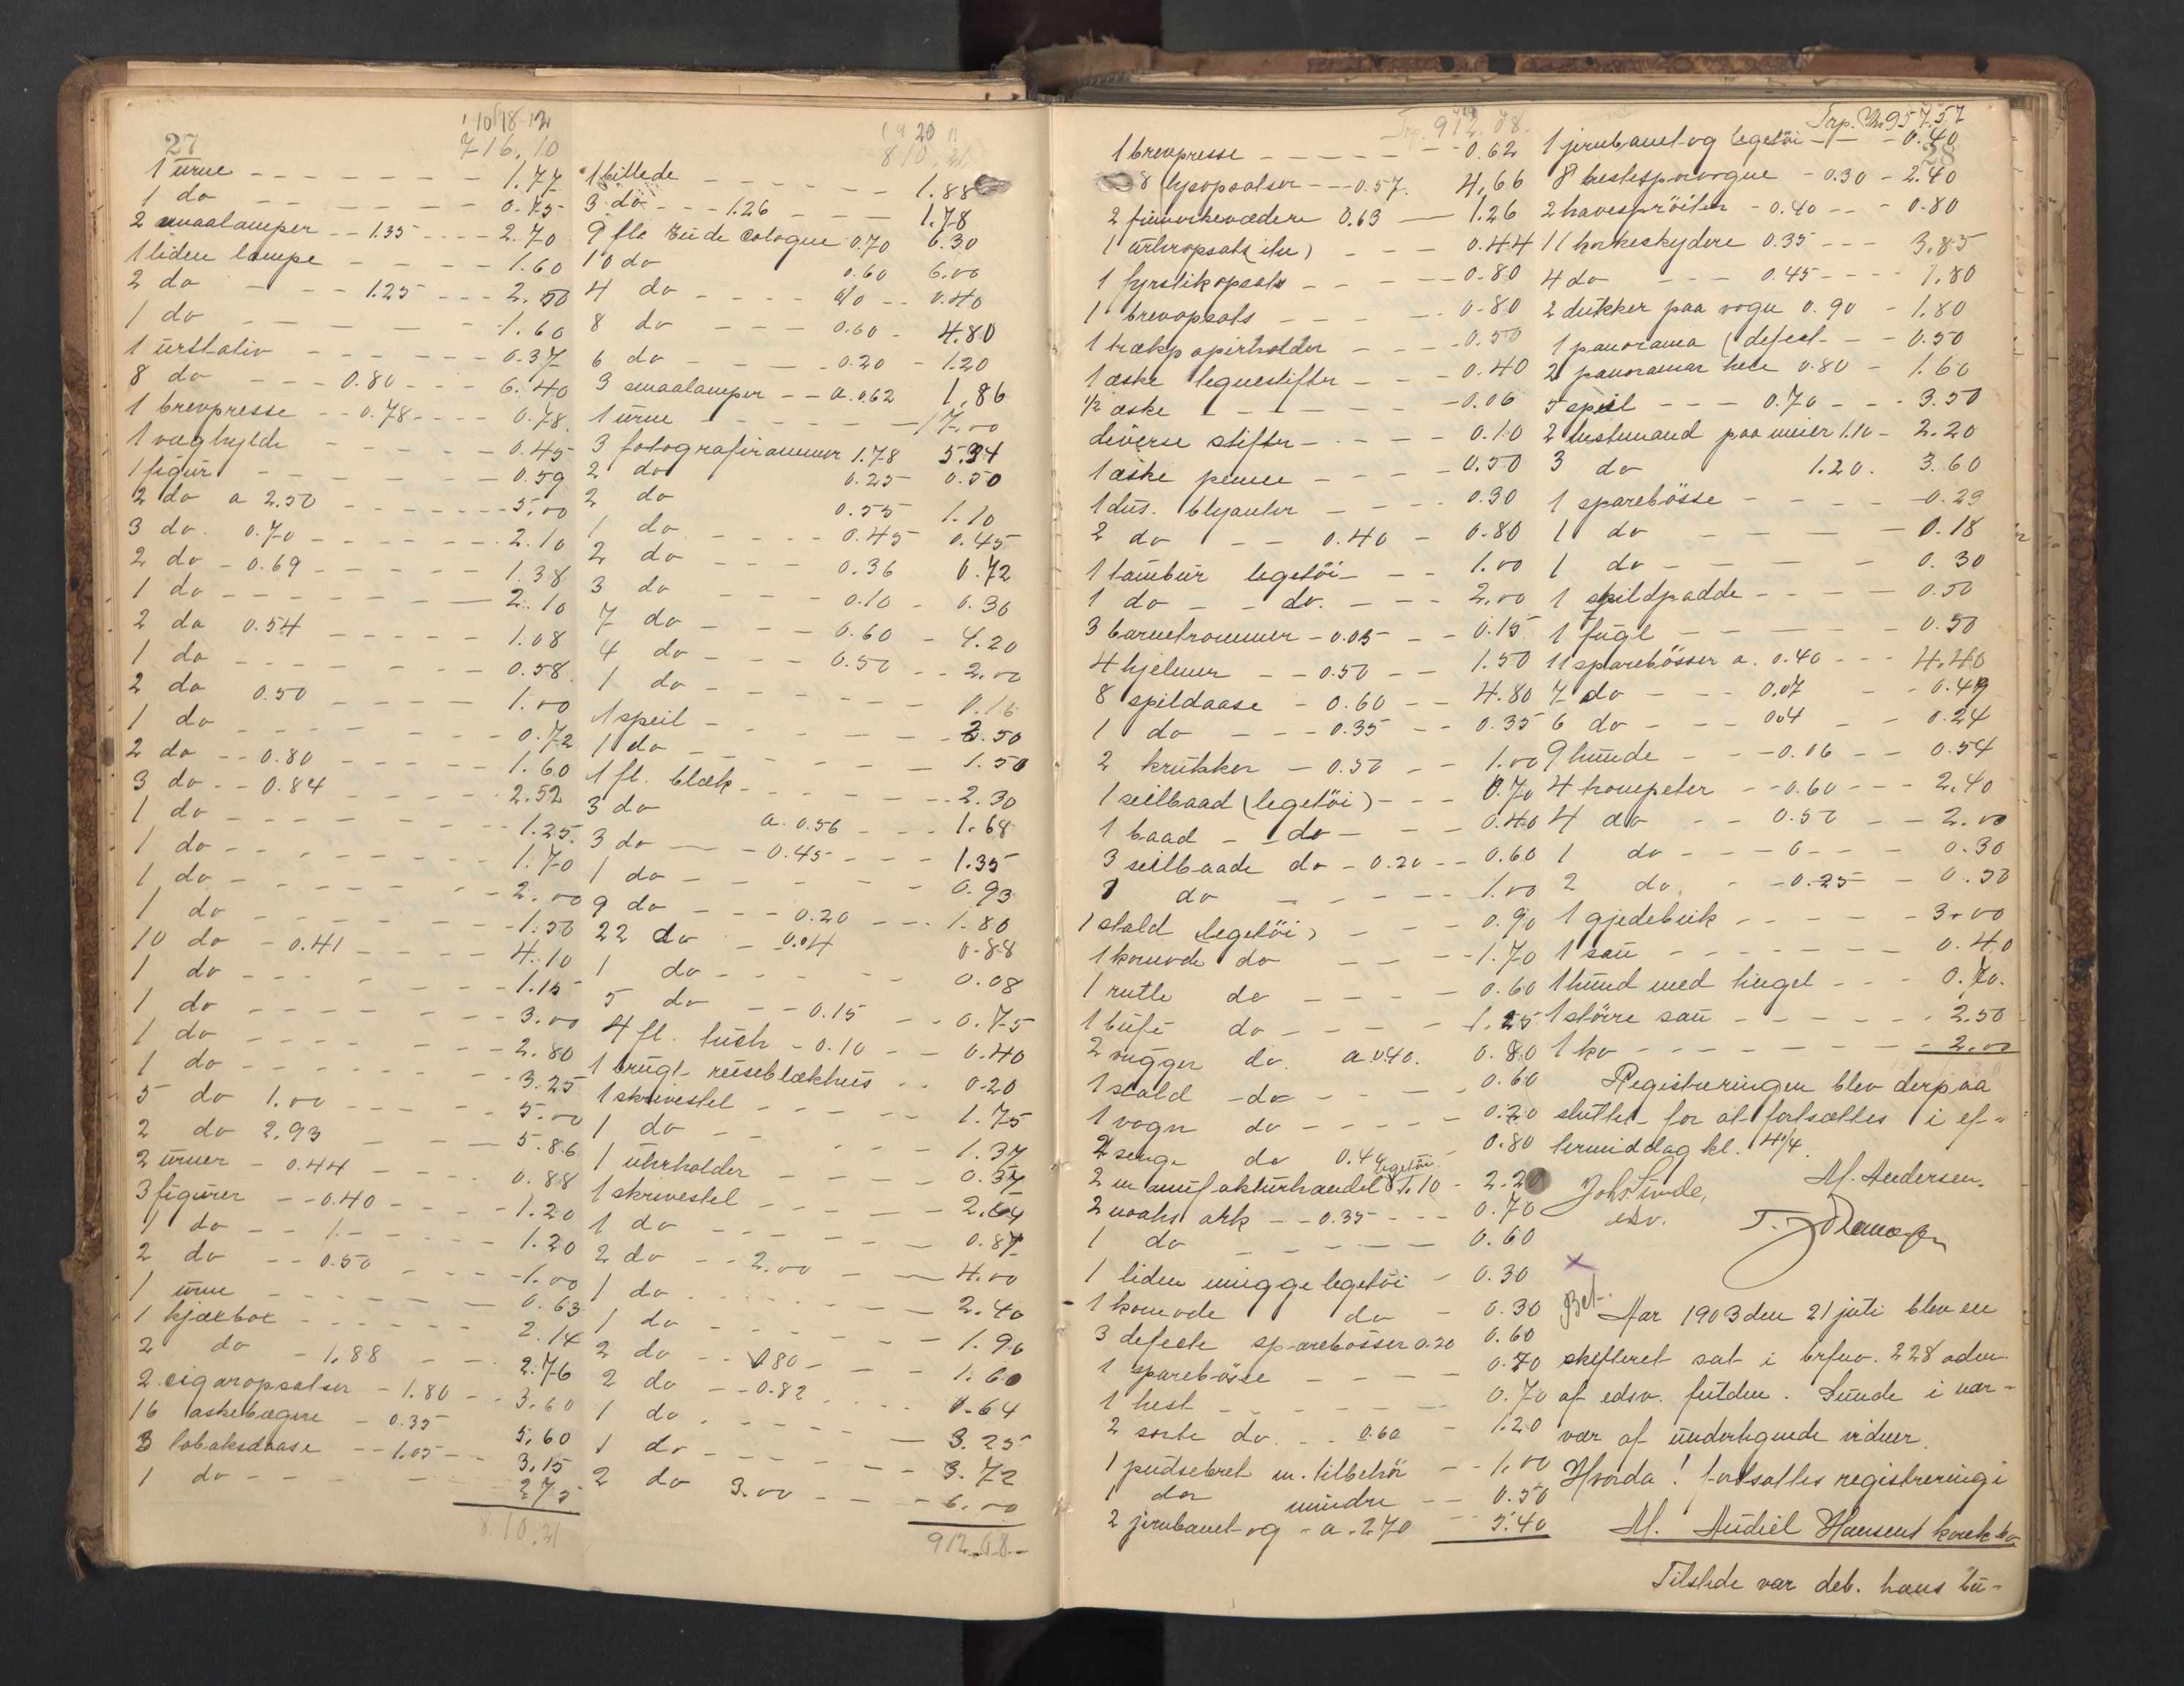 27
716.10
1 urne - - - - - - - 1.77
1 do - - - - - - - 0.75
2 smaalamper - - 1.35 - - - - 2.70
1 liden lampe - - - - - 1.60
2 do - - - 1.25 - - - 2.50
1 do - - - - - - 1.60
1 urstativ - - - - - 0.37
8 do - - - 0.80 - - - 6.40
1 brevpresse - - 0.78 - - - 0.78
1 væghylde - - - - - 0.45
1 figur - - - - - - 0.59
2 do a 2.50 - - - - - - 5.00
3 do. 0.70 - - - - - - 2.10
2 do - 0.69 - - - - - 1.38
1 do - - - - - - - 2.10
2 do 0.54 - - - - - 1.08
1 do - - - - - - 0.58
2 do 0.50 - - - - - 1.00
1 do - - - - - - 0.72
2 do - - 0.80 - - - - - 1.60
3 do - - 0.84 - - - - 2.52
1 do - - - - - - - 1.25
1 do - - - - - - - 1.70
1 do - - - - - - - 2.00
1 do - - - - - - 1.50
10 do - 0.41 - - - - - 4.10
1 do - - - - - - 1.15
1 do - - - - - - 3.00
1 do - - - - - - 2.80
1 do - - - - - - 3.25
5 do 1.00 - - - - - 5.00
2 do 2.93 - - - 5.86
2 urner - 0.44 - - - 0.88
3 figurer - - 0.40 - - - - 1.20
1 do - - 1.- - - - - 1.20
2 do - - 0.50 - - - - 1.00
1 urne - - - - - - 0.63
1 hjælbox - - - - - - 2.14
2 do - 1.88 - - 2.76
2 cigaropsatser - 1.80 - - 3.60
16 askebægere - 0.35 5.60
3 tobaksdaase - - 1.05 - - 3.15
1 do - - - - - 2.75
810.21
810.21
1 billede - - - - - - 1.88
3 do - - - 1.26 - - - 1.78
9 fla Eude Cologne 0.70 6.30
10 do 0.60 6.00
4 do - - - - a/o - - 0.40
8 do - - - 0.60 - 4.80
6 do - - - 0.20 - 1.20
3 smaalamper - - a. 0.62 1.86
1 urne - - - - - - 17.00
3 fotografirammer 1.78 5.34
2 do 0.25 0.50
2 do 0.55 1.10
1 do - - - - 0.45 0.45
2 do - - - 0.36 0.72
3 do - - - 0.10 - 0.30
7 do - - - 0.60 - 4.20
4 do - - - 0.50 - - 2.00
1 do - - - - - - 0.16
1 speil - - - - - - 2.50
1 do - - - - - - - 1.50
1 fl. blæk - - - - - - 2.30
3 do a. 0.56 - - - 1.68
3 do - - 0.45 - - - 1.35
1 do - - - - - - 0.93
9 do - - - 0.20 - - - 1.80
22 do - 0.04 0.88
1 do - - - - - 0.08
5 do - - 0.15 - - 0.75
4 fl. tusch - 0.10 - - 0.40
1 brugt reiseblækhus - - 0.20
1 skrivestel - - - - - 1.75
1 do - - - - - 1.37
1 uhrholder - - - - 0.37
1 skrivestel - - - - - 2.64
1 do - - - - - - 0.87
2 do - - 2.00 - - 4.00
1 do - - - - - - 2.40
1 do - - - - - - 1.90
2 do - - 0.80 - - - 1.60
2 do - - 0.82 - - - 1.64
1 do - - - - - - 3.25
1 do - - - - - - 3.72
2 do 3.00 - - - 6.00
912.08
Trp. 912.08
1 brevpresse - - - - - - 0.62
8 lysopsatser - - - 0.57 4.66
2 0.63 - 1.26
1 - - - 0.44
1 fyrstikopsats - - - - - 0.80
1 brevopsats - - - - - 0.80
1 trækpapirholder - - - 0.50
1 æske tegnestifter - - - 0.40
1/2 æske - - - - - - 0.06
diverse stifter - - - - - 0.10
1 æske penne - - - - - 0.50
1 dus. blyanter - - - - 0.30
2 do - - 0.40 - 0.80
1 tambur legetöi - - - 1.00
1 do - - do. - - - 2.00
3 barnetrommer - 0.05 - - 0.15
4 hjelmer - - 0.50 - - 1.50
8 spildaase - 0.60 - - 4.80
1 do - - - 0.35 - - 0.35
2 krukker - 0.50 - - 1.00
1 seilbaad (legetöi) - - - 0.70
1 baad - do - - - 0.40
3 seilbaade do - 0.20 - - 0.60
1 do - - - - - - 1.00
1 stald (legetöi) - - - 0.90
1 komode do - - - - 1.70
1 do - - - - 0.60
1 bufe do - - - - 1.25
2 vugger do. a 0.40. 0.80
1 stald do - - - - 0.60
1 vogn do - - - - 0.20
2 senge do 0.40 0.80
2 manufakturhandel legetöi 1.10 - 2.20
2 noahs ark - - 0.35 - - - 0.70
1 do - - - - - 0.60
1 liden vugge legetöi - 0.30
1 komode do - 0.30
3 defecte sparebösser 0.20 0.60
1 sparebösse - - - - 0.70
1 hest - - - - - - 0.70
2 sorte do. - - 0.60 - 1.20
1 pudsebret m. tilbehör - - 1.00
1 do mindre - - 0.50
2 jernbanetog - a. 2.70 - - 5.40
Trp. 957.57
28
1 jernbanetog legetöi - - - 0.40
8 hestesporvogne - 0.30 - 2.40
2 havespröiter - 0.40 - - - 0.80
11 korkeskydere 0.35 - - - 3.85
4 do - - - 0.45 - - - - 1.80
2 dukker paa vogn 0.90 - 1.80
1 panorama (defect - - - 0.50
2 panoramar hele 0.80 - 1.60
5 spil - - - 0.70 - - - 3.50
2 hestemand paa meier 1.10 - 2.20
3 do 1.20. 3.60
1 sparebösse - - - - - 0.29
1 do - - - - - 0.18
1 do - - - - - 0.30
1 skildpadde - - - - 0.50
1 fugl - - - - - - 0.50
11 sparebösser a. 0.40 - - - 4.40
7 do - - - 0.07 - - 0.49
6 do - - - 0.04 - - 0.24
9 hunde - - - 0.06 - - 0.54
4 trompeter - - 0.60 - - - 2.40
4 do - - 0.50 - - 2.00
1 do - - - 0 - - - 0.30
2 do - - 0.25 - - 0.50
1 gjedebuk - - - - - 3.00
1 sau - - - - - - - 0.40
1 hund med - - - 0.70.
1 större sau - - - - - - 2.50
1 ko - - - - - - - - 2.00
Registreringen blev derpaa
sluttet for at fortsættes i ef-
termiddag kl. 4 1/4.
M. Andersen.
Joh. Sunde,
edsv.
Bet.
Aar 1903 den 21 juli blev en
skifteret sat i brfuo. 228 aden
af edsv. futden. Sunde i nær-
vær af undertegnede vidner.
Hvorda! fortsattes registrering i
M. Audiel Hansens konk.bo
Tilstede var deb. hans bu-